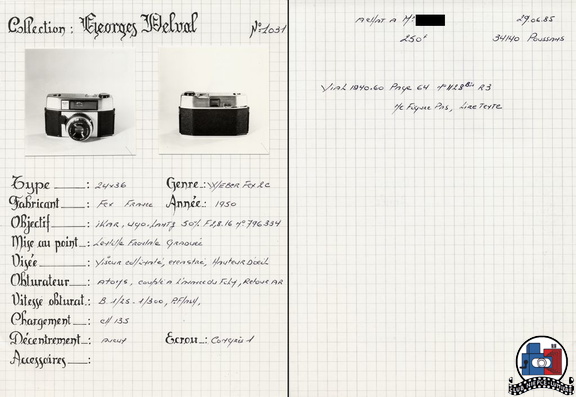 Collection : Georges Delval N° 1031
Type : 24x36 Genre : Weber Fex LC
Fabricant : Fex France Année : 1950
Objectif : 50% F2,8.16 n° 796334
Mise au point : Lentille Frontale Graduée
Visée : Viseur collimaté, Hauteur d'oeil
Obturateur : Atoms, couplé à l'avance du Film, Retour AR
Vitesse obturat. : B. 1/25 - 1/300,
Chargement : ch 135
Décentrement : Aucun Ecrou : Congrès 1
Accessoires :
Achat à M. 29.06.85
250f 34140 Poussans
Vial 1940.60 Page 64 R3
Ne Figure Pas, Lire Texte